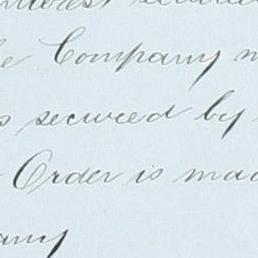 interest secured
e Company
s secured by
Order is mad
any